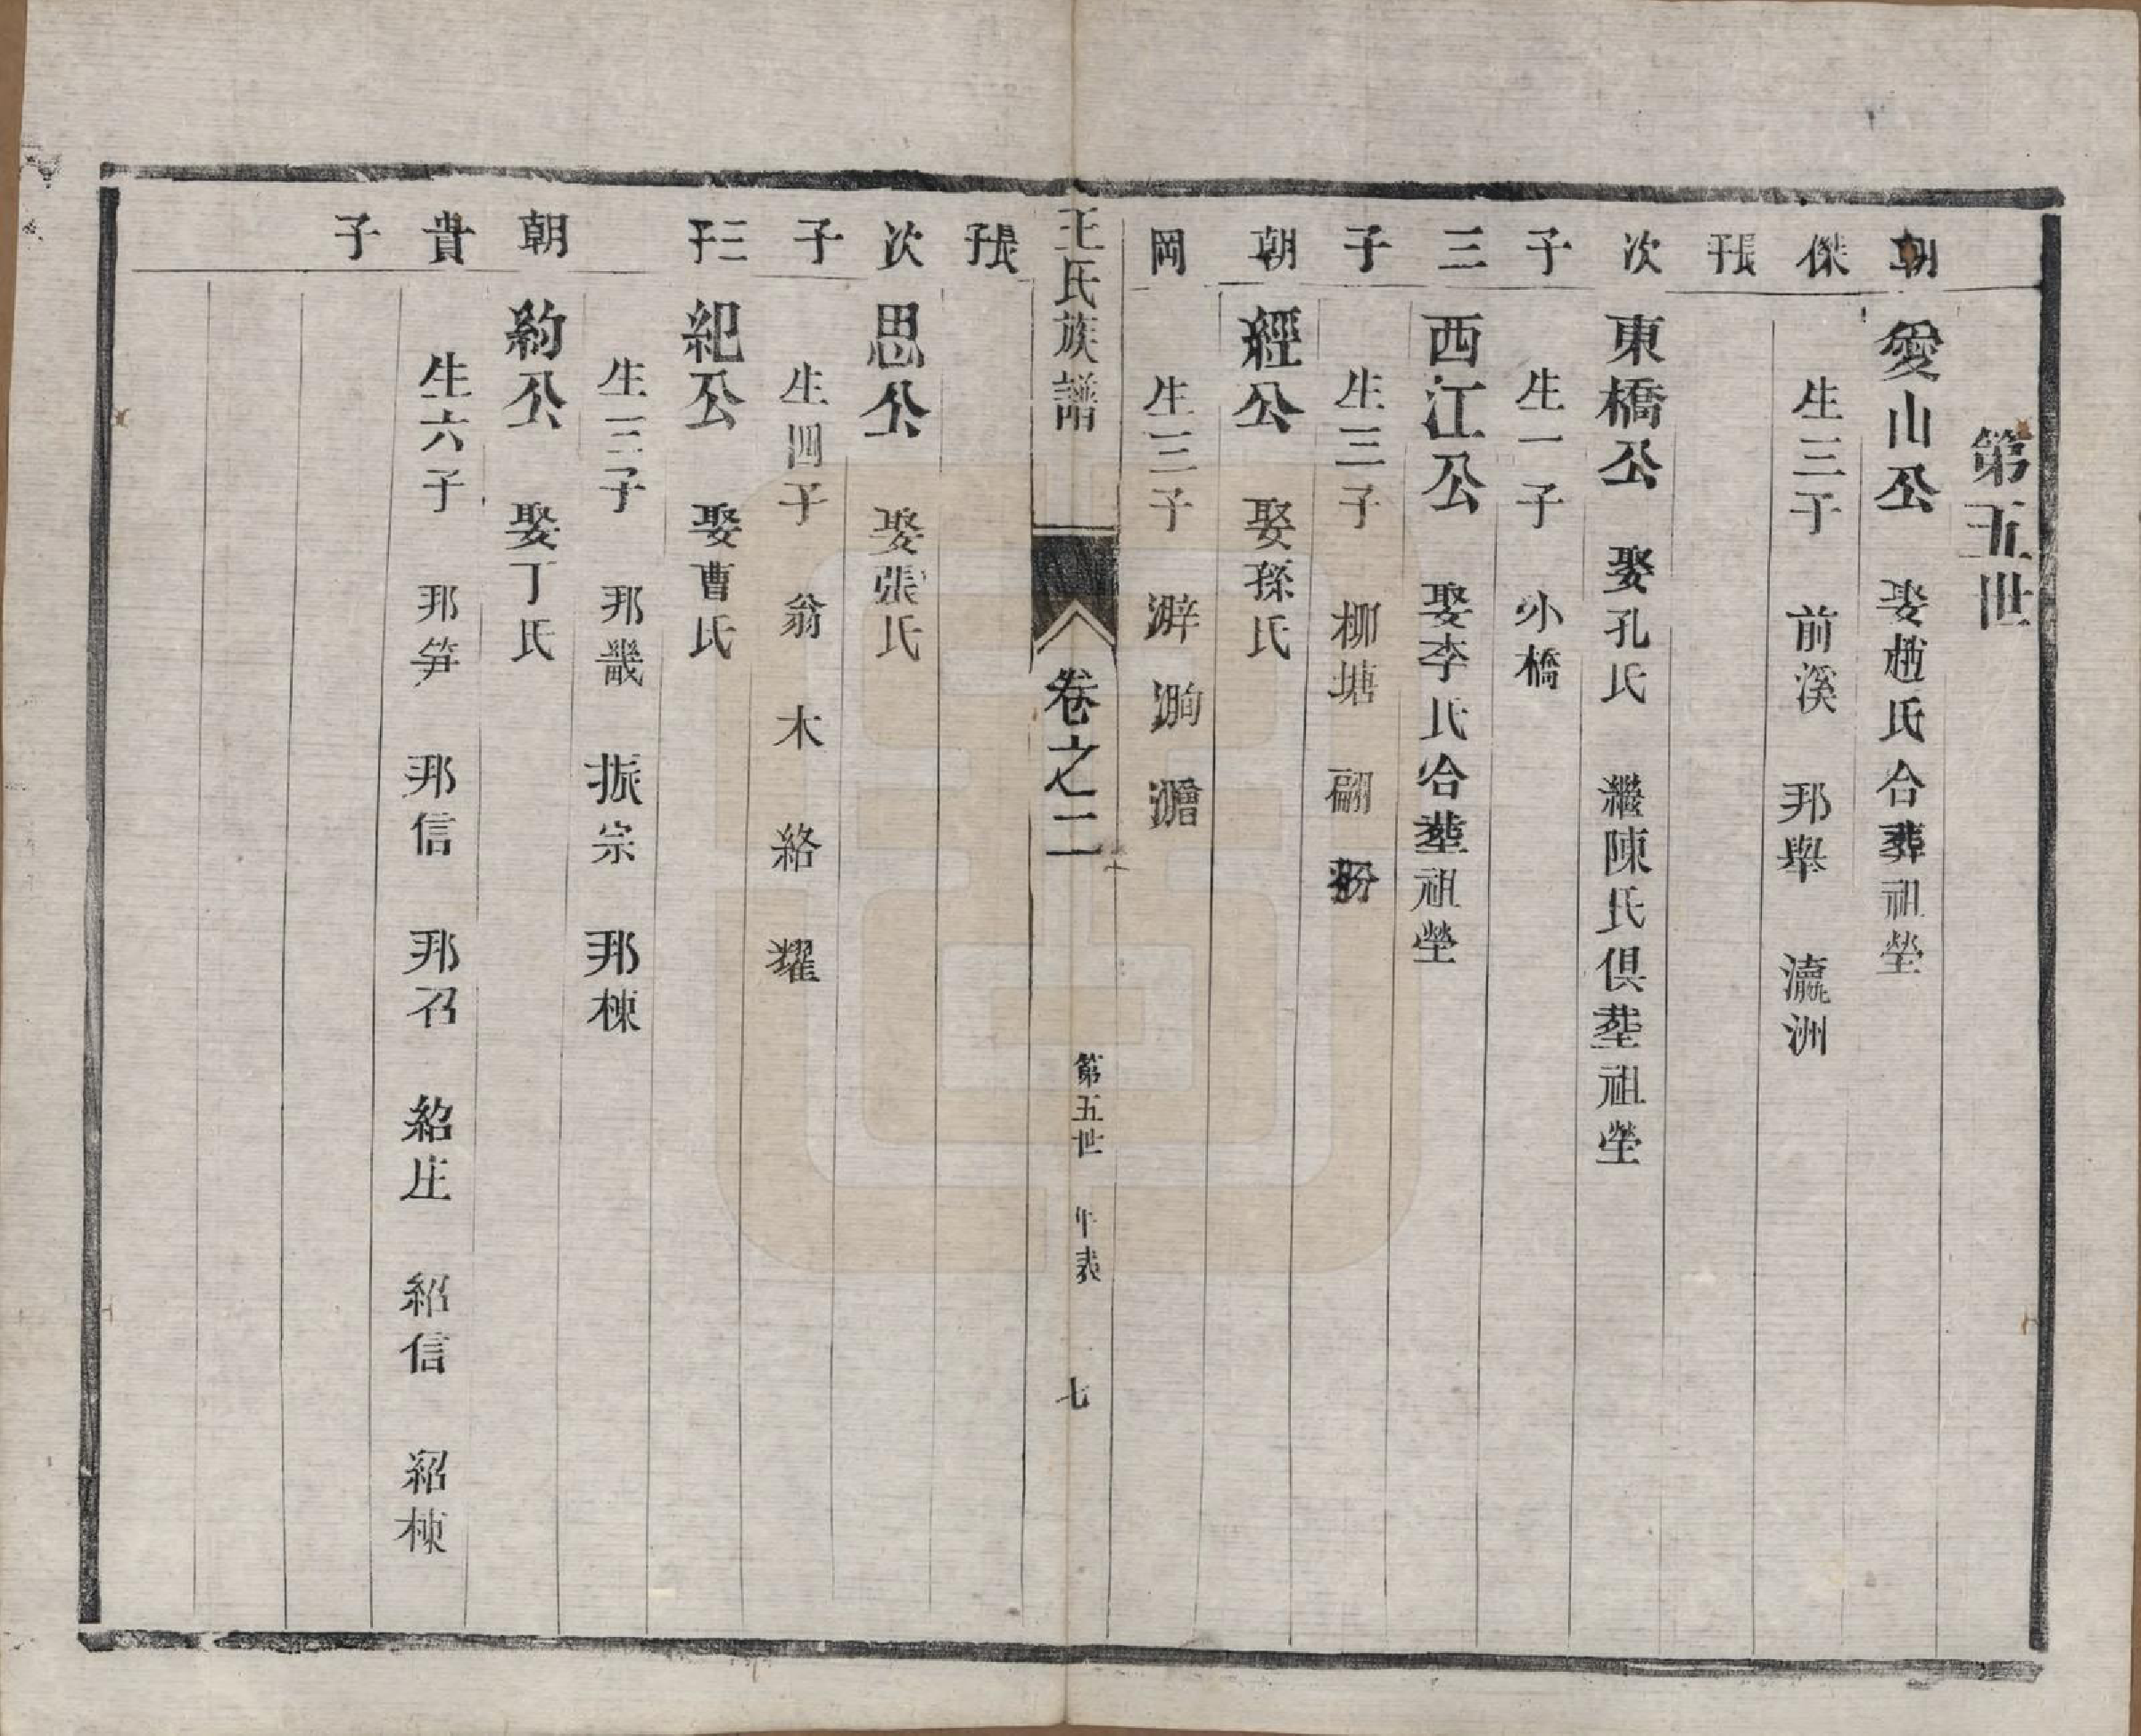 第五世
朝 愛山公 娶趙氏合葬祖塋
傑 生三子 前溪 邦舉 瀛洲
長子
次 東橋公 娶孔氏 繼陳氏俱塟祖塋
子 生一子 小橋
三 西江公 娶李氏合塟祖塋
子 生三子 柳塘
朝 經公 娶孫氏
岡 生三子 澼 澹
王氏族譜 卷之二 第五世 年表 七
長子
次 思公 娶張氏
子 生四子 翁 木 絡 耀
三子 紀公 娶曹氏
生三子 邦畿 振宗 邦棟
朝 約公 娶丁氏
貴 生六子 邦笋 邦信 邦召 紹庄 紹信 紹棟
子